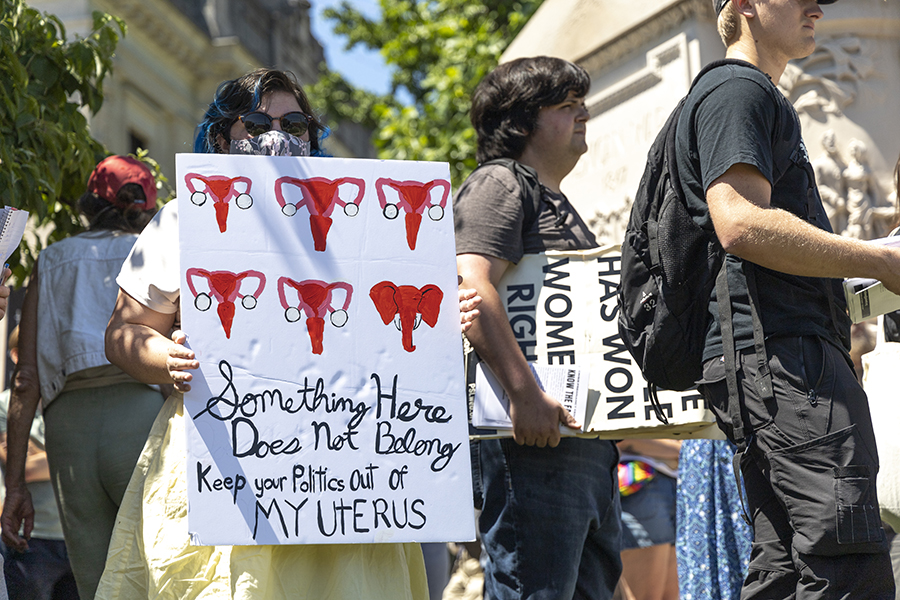 Something Here
Does Not Belong
Keep your Politics Out of
MY UTERUS
HAS WON
WOME
RIGH
KNOW THE FA